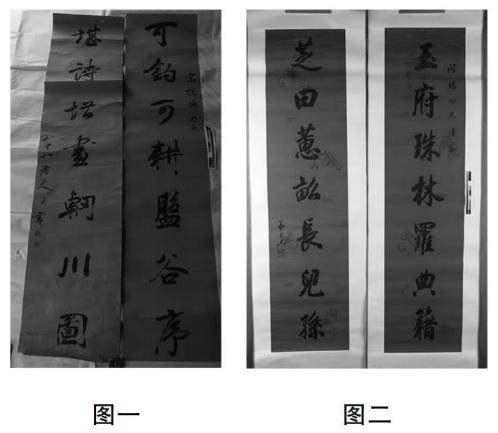 可釣可耕盤谷序
堪詩堪畫輞川圖
八十八老人
图一
玉府珠林羅典籍
芝田蕙畝長兒孫
图二